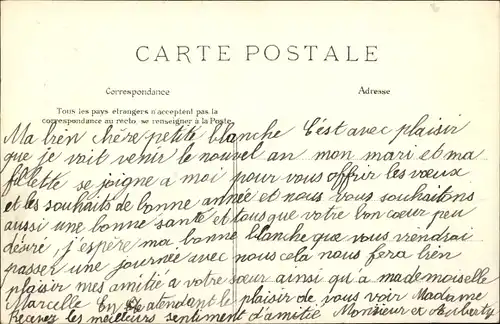 CARTE POSTALE
Correspondance
Adresse
Tous les pays étrangers n'acceptent pas la
correspondance au recto, se renseigner à la Poste.
Ma bien chère petite blanche C'est avec plaisir
que je voit venir le nouvel an mon mari et ma
fillette se joigne a moi pour vous offrir les vœux
et les souhaits de bonne année et nous vous souhaitons
aussi une bonne santé et tous que votre bon cœur peu
désiré, j'espère ma bonne blanche que vous viendrai
passer une journée avec nous cela nous fera bien
plaisir mes amitié a votre sœur ainsi qu'a mademoiselle
Marcelle En atendant le plaisir de vous voir Madame
Recevez les meilleurs sentiment d'amitié Monsieur et